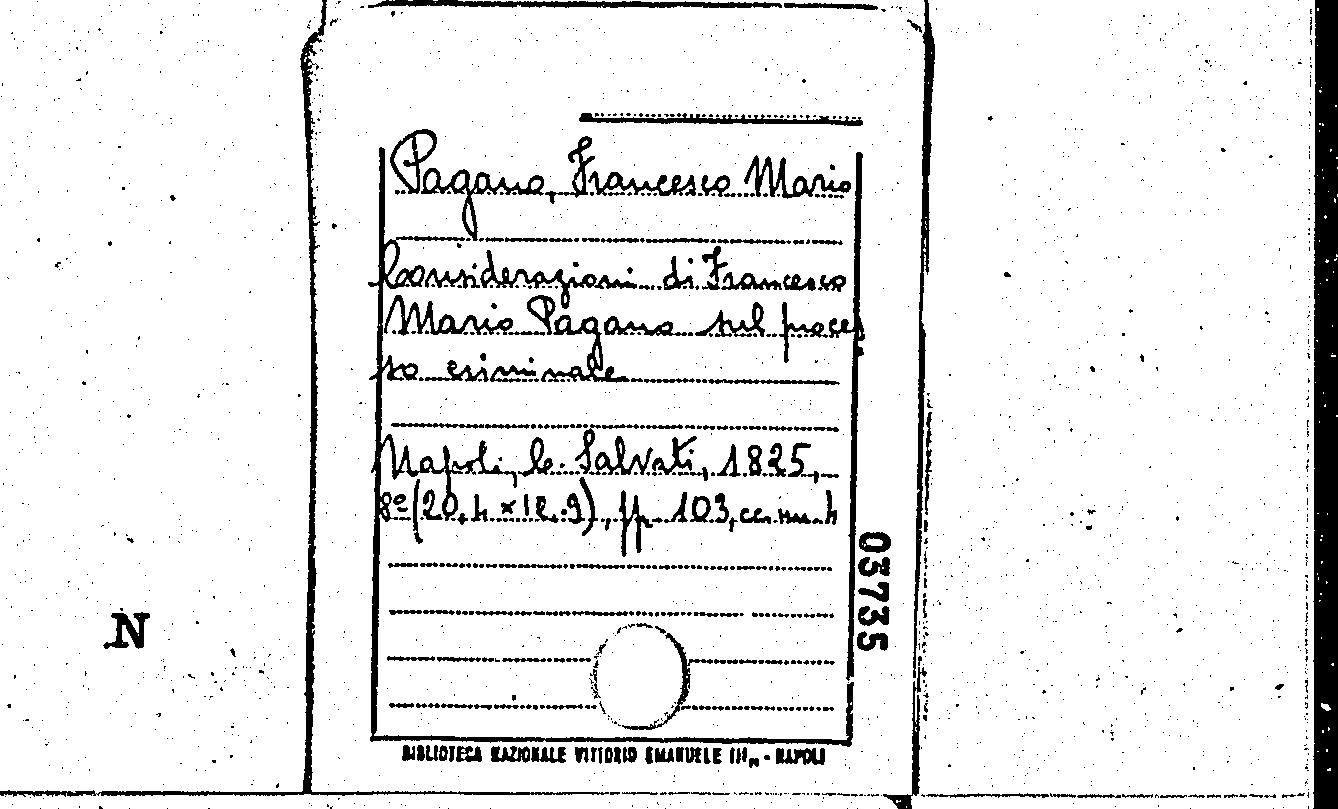 Pagano, Francesco Mario
Considerazioni di Francesco
Mario Pagano sul proces
so criminale
Napoli, C. Salvati, 1825,
8º (20,4 × 12,9), pp. 103, cc. nn. 4
03735
N
BIBLIOTECA NAZIONALE VITTORIO EMANUELE III„ - NAPOLI